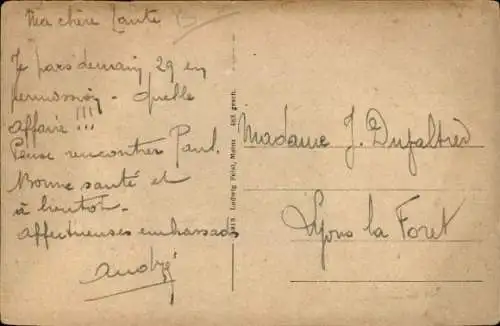 Ma chère Tante
Je pars demain 29 en
permission - quelle
affaire !!!
Pense rencontrer Paul.
Bonne santé et
à bientôt -
affectueuses embrassades
André
Ludwig Feist, Mainz ges. gesch.
Madame J. Dufaltred
Lyons la Foret